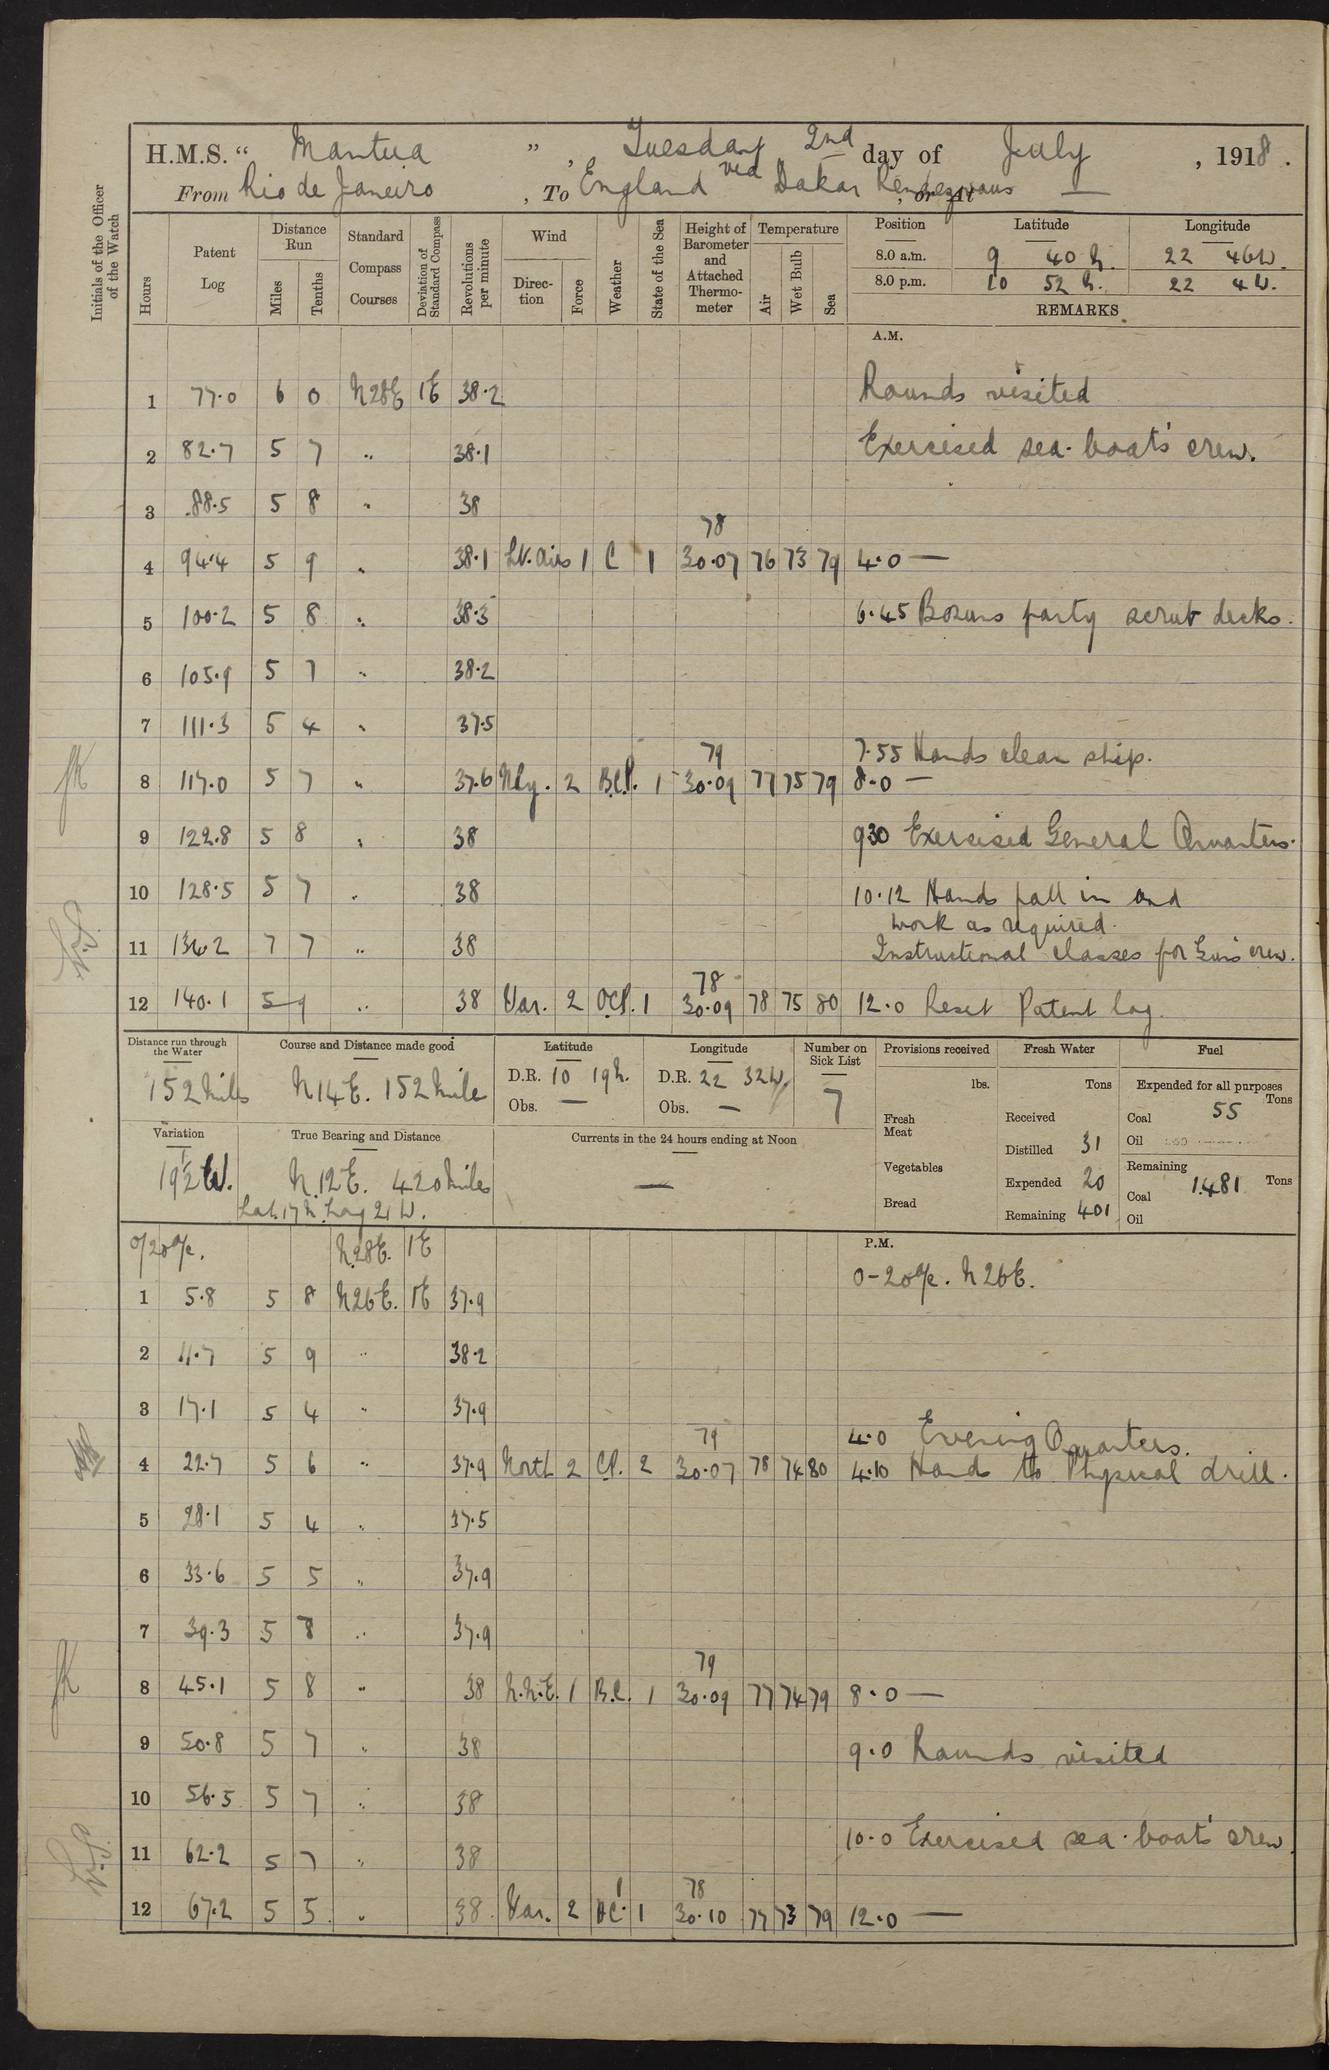 H.M.S. " Mantua " , Tuesday 2nd day of July , 1918 .
From Rio de Janeiro , To England via Dakar Rendezvous , or At —
Initials of the Officer of the Watch
Hours Patent Log Distance Run Miles Tenths Standard Compass Courses Deviation of Standard Compass Revolutions per minute Wind Direction Force Weather State of the Sea Height of Barometer and Attached Thermometer Temperature Air Wet Bulb Sea Position Latitude Longitude
8.0 a.m. 9 40 N. 22 46 W.
8.0 p.m. 10 52 N. 22 4 W.
REMARKS
A.M.
1 77.0 6 0 N28E 1E 38.2 Rounds visited
2 82.7 5 7 " 38.1 Exercised sea-boat's crew.
3 88.5 5 8 " 38
78
4 94.4 5 9 " 38.1 Lt. airs 1 C 1 30.07 76 73 79 4.0 —
5 100.2 5 8 " 38.3 6.45 Bosuns party scrub decks.
6 105.9 5 7 " 38.2
7 111.3 5 4 " 37.5
79 7.55 Hands clean ship.
8 117.0 5 7 " 37.6 Nly. 2 B.C.P. 1 30.09 77 75 79 8.0 —
9 122.8 5 8 " 38 9.30 Exercised General Quarters.
10 128.5 5 7 " 38 10.12 Hands fall in and
work as required.
11 134.2 7 7 " 38 Instructional classes for Guns crew.
78
12 140.1 5 9 " 38 Var. 2 OCP. 1 30.09 78 75 80 12.0 Reset Patent log.
Distance run through the Water Course and Distance made good Latitude Longitude Number on Sick List Provisions received Fresh Water Fuel
152 Miles N14E. 152 Mile D.R. 10 19N. D.R. 22 32W. 7 lbs. Tons Expended for all purposes Tons
Obs. — Obs. — Fresh Meat Received Coal 55
Variation True Bearing and Distance Currents in the 24 hours ending at Noon Distilled 31 Oil
19½ W. N.12E. 420 Miles — Vegetables Expended 20 Remaining Tons
Lat. 17 N. Long 21 W. Bread Remaining 401 Coal 1481
Oil
P.M.
0/20 a/c. N.28E. 1E 0-20 a/c. N26E.
1 5.8 5 8 N26E. 1E 37.9
2 11.7 5 9 " 38.2
3 17.1 5 4 " 37.9
79 4.0 Evening Quarters.
4 22.7 5 6 " 37.9 North 2 CP. 2 30.07 78 74 80 4.10 Hands to Physical drill.
5 28.1 5 4 " 37.5
6 33.6 5 5 " 37.9
7 39.3 5 8 " 37.9
79
8 45.1 5 8 " 38 N.N.E. 1 B.C. 1 30.09 77 74 79 8.0 —
9 50.8 5 7 " 38 9.0 Rounds visited
10 56.5 5 7 " 38
10.0 Exercised sea-boat's crew.
11 62.2 5 7 " 38
78
12 67.2 5 5 " 38 Var. 2 OC. 1 30.10 77 73 79 12.0 —